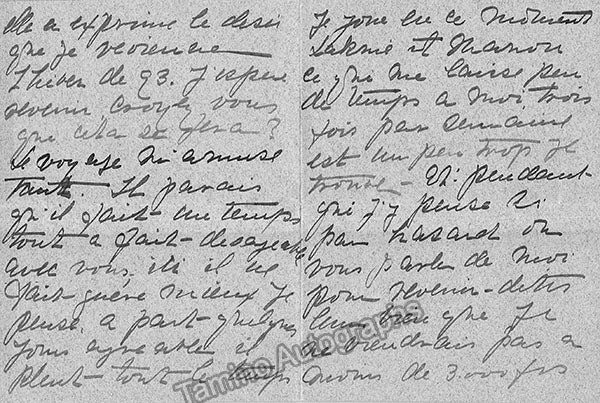 elle a exprimé le désir
que je revienne
l'hiver de 93. J'espère
revenir croyez vous
que cela se fera?
Le voyage m'amuse
tant. Il parais
qu'il fait un temps
tout a fait desagéable
avec vous. ici il ne
fait guère mieux je
pense. a part quelques
jours agréables il
pleut tout le temps
Je joue en ce moment
Lakmé et Manon
ce qui me laisse peu
de temps a moi. trois
fois par semaine
est un peu trop je
trouve. pendant
que j'y pense si
par hasard on
vous parle de moi
pour revenir dites
leur bien que je
ne viendrais pas a
moins de 3.000 frs
Tamino Autographs